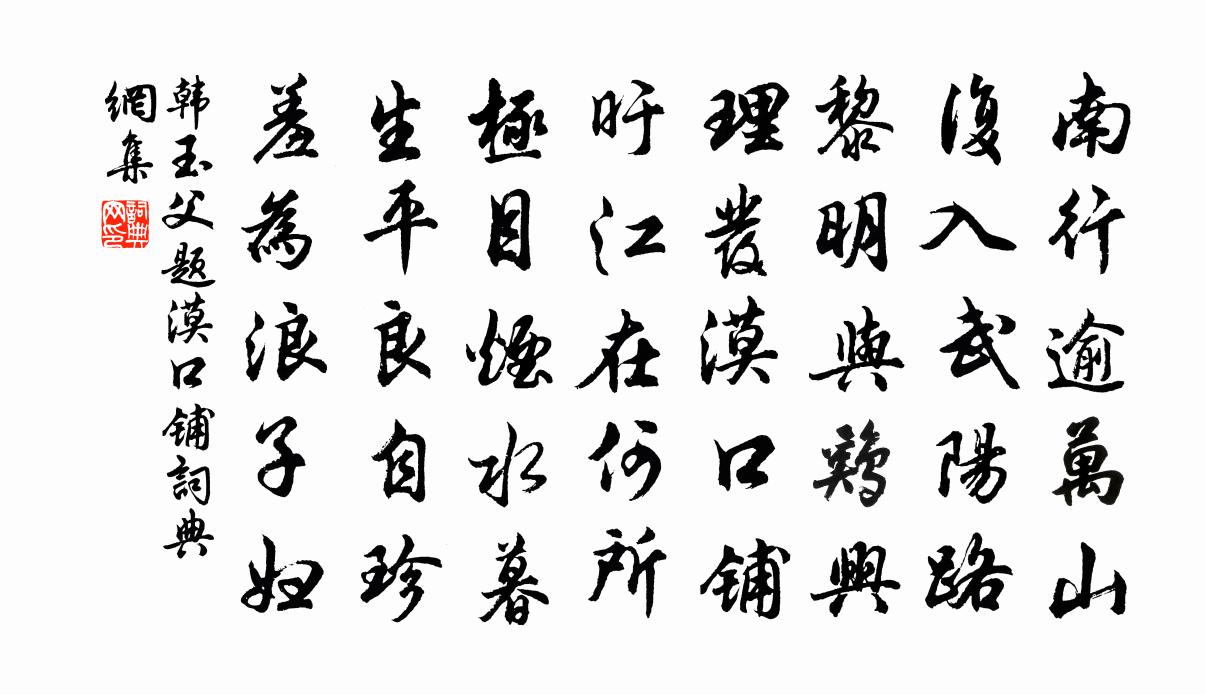 南行逾萬山
復入武陽路
黎明與鷄興
理發漠口鋪
盱江在何所
極目煙水暮
生平良自珍
羞為浪子婦
韩玉父题漠口鋪詞典
網集
詞典
网印